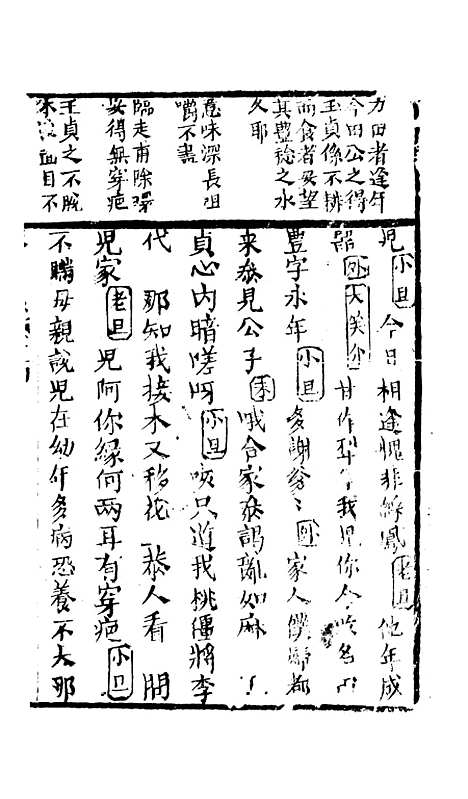 力田者逢年
今田公之得
玉貞係不耕
而食者安望
其豐稔之水
久耶
意味深長咀
嚼不盡
臨走甫除環
安得無穿疤
王貞之不脫
面目不
兒 小旦 今日相逢愧非綵鳳 老旦 他年成
韶 外大笑介 甘作犁牛我兒你今吟名
豐字永年 小旦 多謝爹爹 外 家人僕婦都
來叅見公子 衆 哦合家叅謁亂如麻 了
貞心內暗嗟呀 小旦 咳只道我桃僵將李
代 那知我接木又移花 恭人看 問
兒家 老旦 兒阿你緣何兩耳有穿疤 小旦
不瞞母親說兒在幼年多病恐養不大那